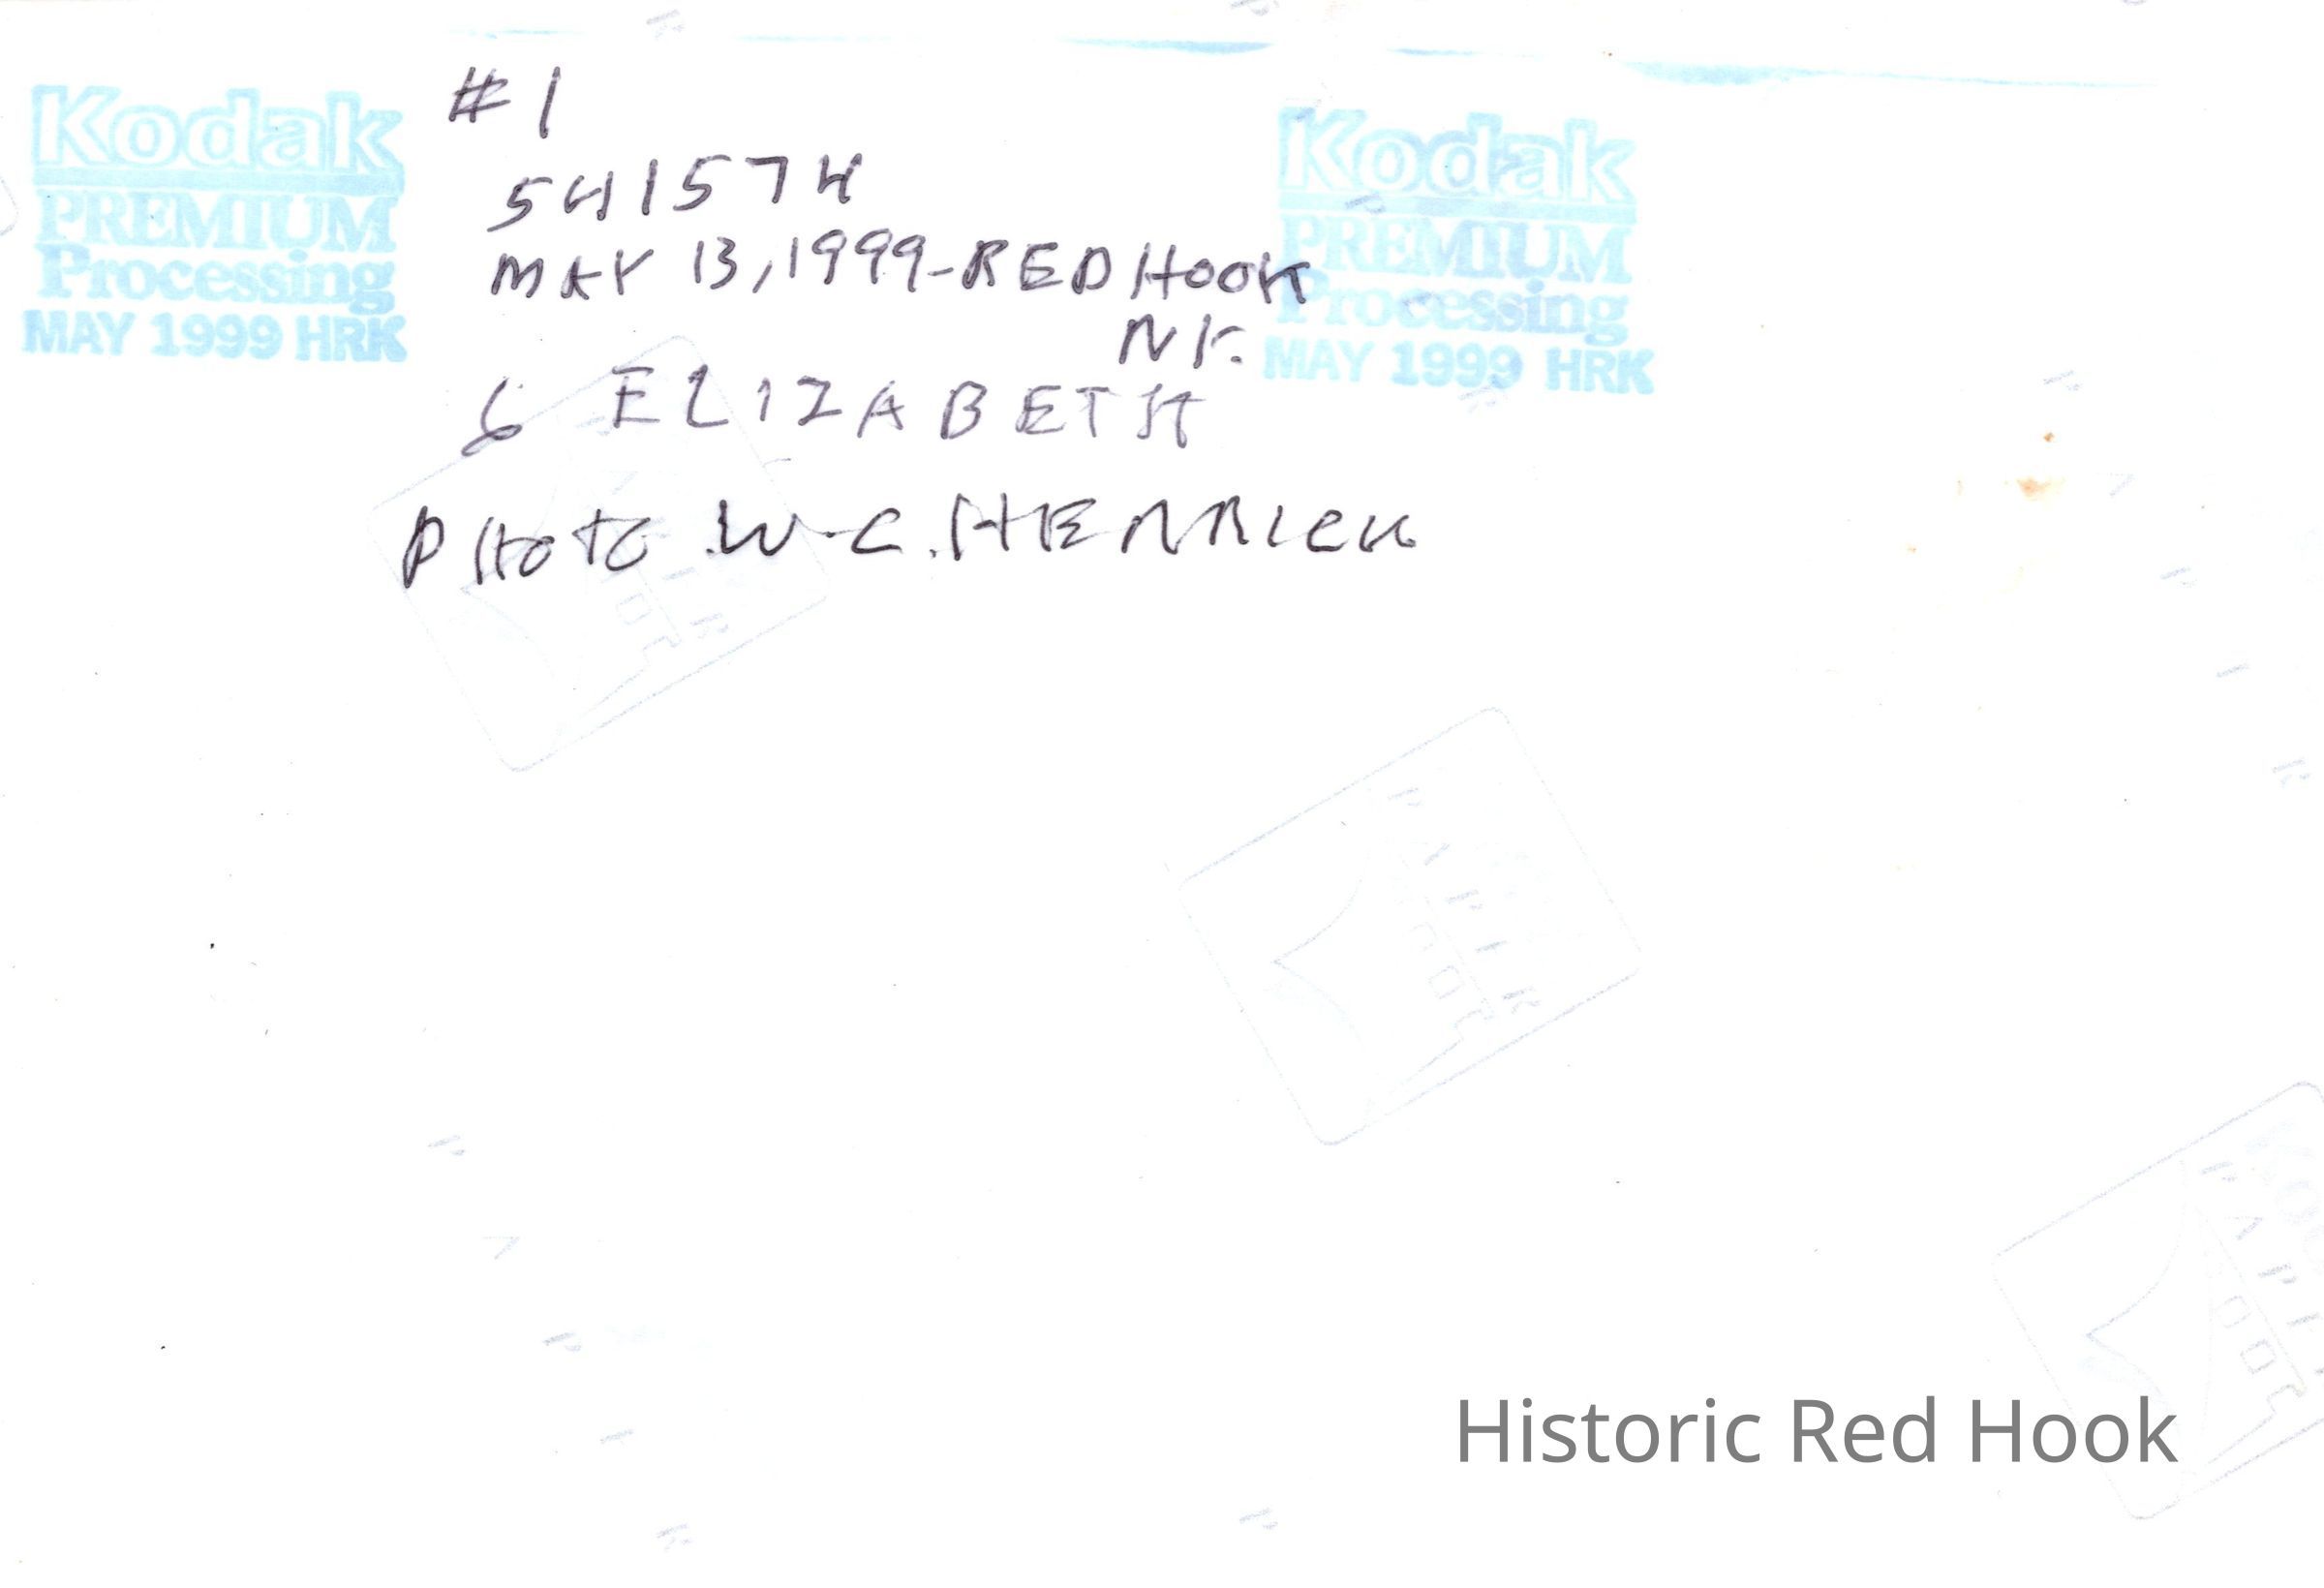 Kodak
PREMIUM
Processing
MAY 1999 HRK
#1
541574
MAY 13, 1999-RED HOOK
NY.
6 ELIZABETH
PHOTO W.C. HENRICK
Kodak
PREMIUM
Processing
MAY 1999 HRK
Historic Red Hook